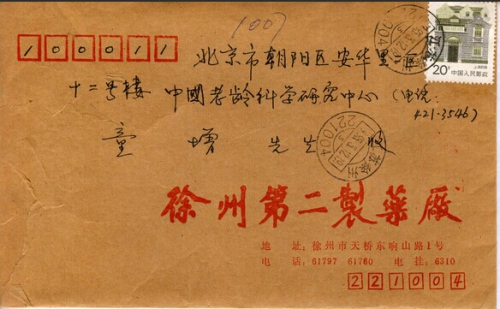 1007
100011
20分 中国人民邮政
北京市朝阳区安华里
十二号楼 中国老龄科学研究中心 (电话:
421-3546)
童增 先生 收
221004
徐州第二製药厰
地 址: 徐州市天桥东响山路1号
电 话: 61797 61760 电 挂: 6310
221004